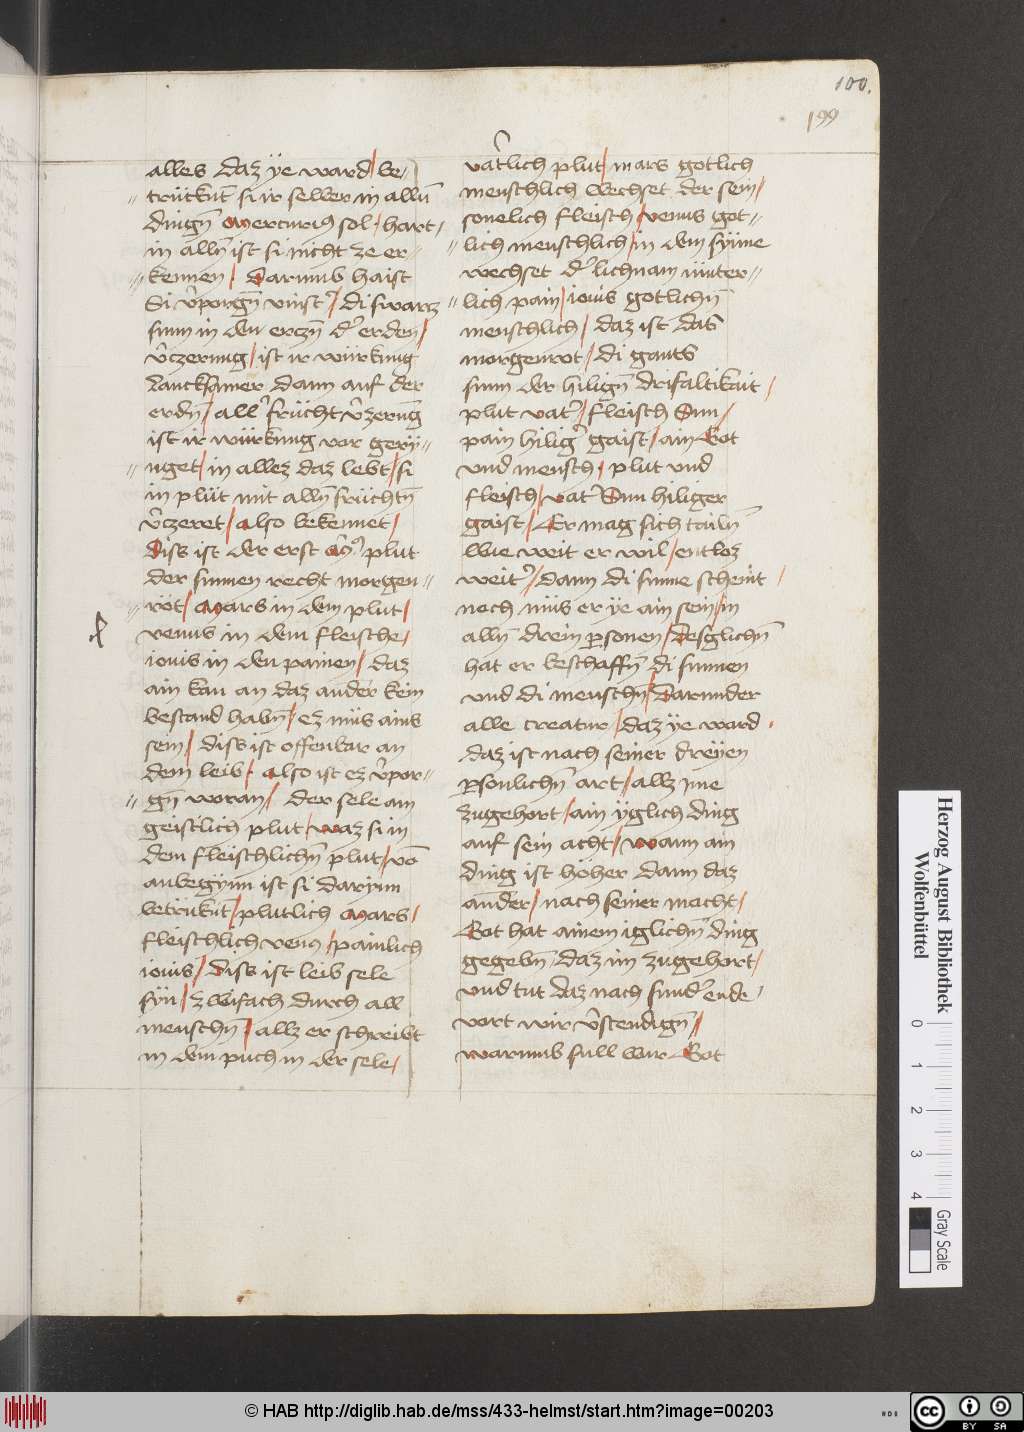 100.
199
alles daz ÿe ward / be-
trückñt si ir selber in alln̄
dingn̄ Mercurius sol / hart
in alln̄ ist si nicht ze er-
kennen / Darumb haist
Si v̄porgn̄ vinst' / di swarz
sunn in den erczn̄ d' erden /
v̄czerung / ist ir würkung
Lancksamer dann auf der
erdn̄ / all' frücht v̄zerung
ist ir würkung vor gerü-
nget / in allez daz lebt / si
in plüt mit alln̄ früchtn̄
v̄czeret / also bekennet /
Diss ist der erst plut
der sunnen recht morgen-
röt / Mars in dem plut /
venus in dem fleische /
iouis in den painen / daz
ain kan an daz ander kein
bestand habn̄ / ez müs ains
sein / diss ist offenbar an
dem leib / also ist ez v̄por-
gn̄ woran / der sele ain
geistlich plut / waz si in
dem fleischlichn̄ plut / vō
anbegynn ist si darynn
betrükñt / plutlich Mars /
fleischlich venus / painlich
iouis / Diss ist leib sele
syn / zwifach durch all
menschn̄ / allz er schreibt
in dem puch in der sele /
vātlich plut / mars gotlich
menschlich wechset der sein /
sonelich fleisch / venus got-
lich menschlich / in dem synne
wechset d' lichnaminter-
lich pain / iouis gotlichn̄
menschlich / daz ist das
morgenrot / di gants
sunn der hilign̄ drifaltikait /
plut vat' / fleisch Sun /
pain hilig' gaist / ain Got
vnd mensch / plut vnd
fleisch / vat' Sun hiliger
gaist / Er mag sich tailn̄
wie weit er wil / entloz
weit' / dann di sunne scheint /
noch müs er ÿe ain sein / in
alln̄ drein p̄sonen / Desglichn̄
hat er beschaffn̄ di sunnen
vnd di menschn̄ / Darunder
alle creatur / daz ÿe ward .
daz ist nach seiner dreÿen
p̄sonlichn̄ art / allz ime
zugehort / ain ÿglich ding
auf sein acht / wann ain
ding ist höher dann daz
ander / nach seiner macht /
Got hat ainem iglichn̄ ding
gegebn̄ / daz im zugehort /
vnd tut daz nach sund' ende /
vort wir v̄stendign̄ /
warumb süll wir Got
Herzog August Bibliothek
Wolfenbüttel
0 1 2 3 4
Gray Scale
© HAB http://diglib.hab.de/mss/433-helmst/start.htm?image=00203
cc BY SA